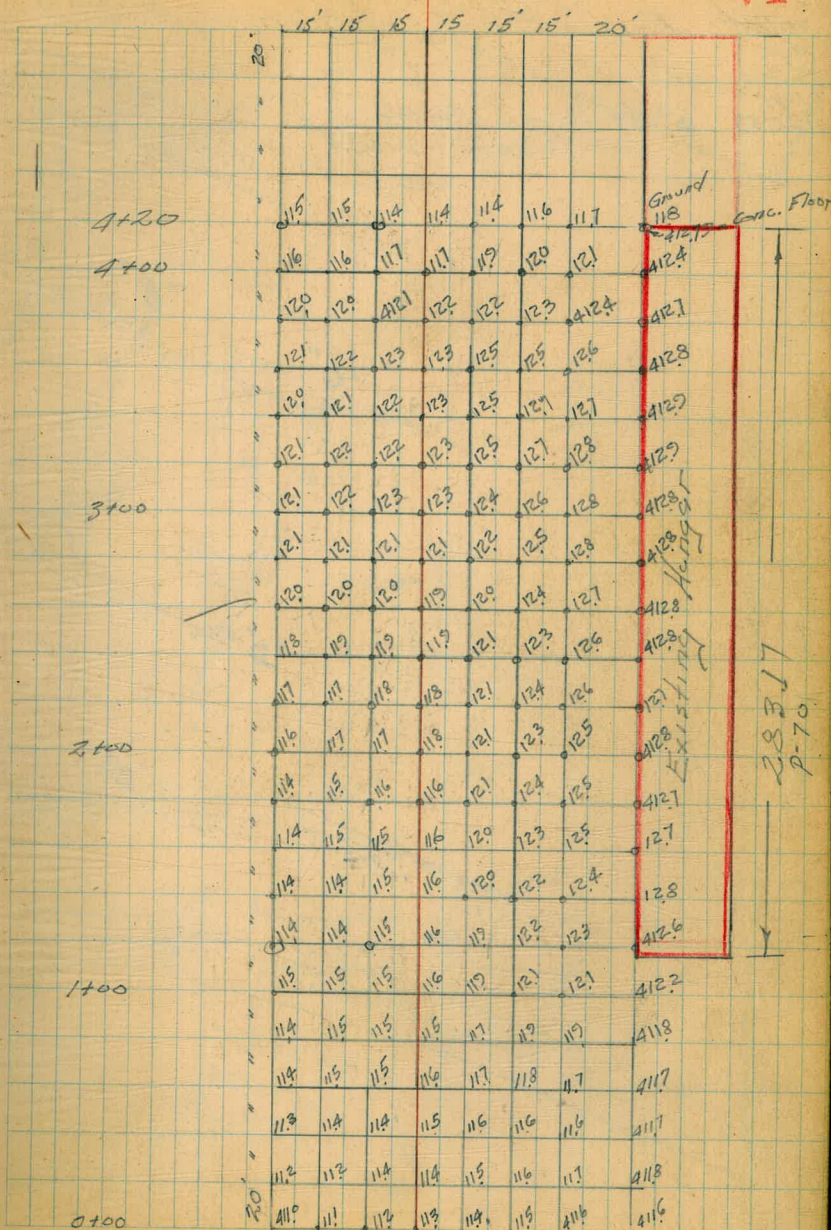 15' 15 15 15 15' 15' 20'
20'
Ground
4+20 11.5 11.5 11.4 11.4 11.4 11.6 11.7 11.8 Conc. Floor
412.75
4+00 11.6 11.6 11.7 11.7 11.9 12.0 12.1 412.4
12.0 12.0 412.1 12.2 12.2 12.3 412.4 412.7
12.1 12.2 12.3 12.3 12.5 12.5 12.6 412.8
12.0 12.1 12.2 12.3 12.5 12.7 12.7 412.9
12.1 12.2 12.2 12.3 12.5 12.7 12.8 412.9
3+00 12.1 12.2 12.3 12.3 12.4 12.6 12.8 412.8
12.1 12.1 12.1 12.1 12.2 12.5 12.8 412.8
12.0 12.0 12.0 11.9 12.0 12.4 12.7 412.8
11.8 11.9 11.9 11.9 12.1 12.3 12.6 412.8
11.7 11.7 11.8 11.8 12.1 12.4 12.6 12.7
2+00 11.6 11.7 11.7 11.8 12.1 12.3 12.5 412.8
11.4 11.5 11.6 11.6 12.1 12.4 12.5 412.7
11.4 11.5 11.5 11.6 12.0 12.3 12.5 12.7
11.4 11.4 11.5 11.6 12.0 12.2 12.4 12.8
11.4 11.4 11.5 11.6 11.9 12.2 12.3 412.6
1+00 11.5 11.5 11.5 11.6 11.9 12.1 12.1 412.2
11.4 11.5 11.5 11.5 11.7 11.9 11.9 411.8
11.4 11.5 11.5 11.6 11.7 11.8 11.7 411.7
11.3 11.4 11.4 11.5 11.6 11.6 11.6 411.7
11.2 11.2 11.4 11.4 11.5 11.6 11.7 411.8
20'
0+00 411.0 11.1 11.2 11.3 11.4 11.5 411.6 411.6
Existing Hangar
283.17
P-70